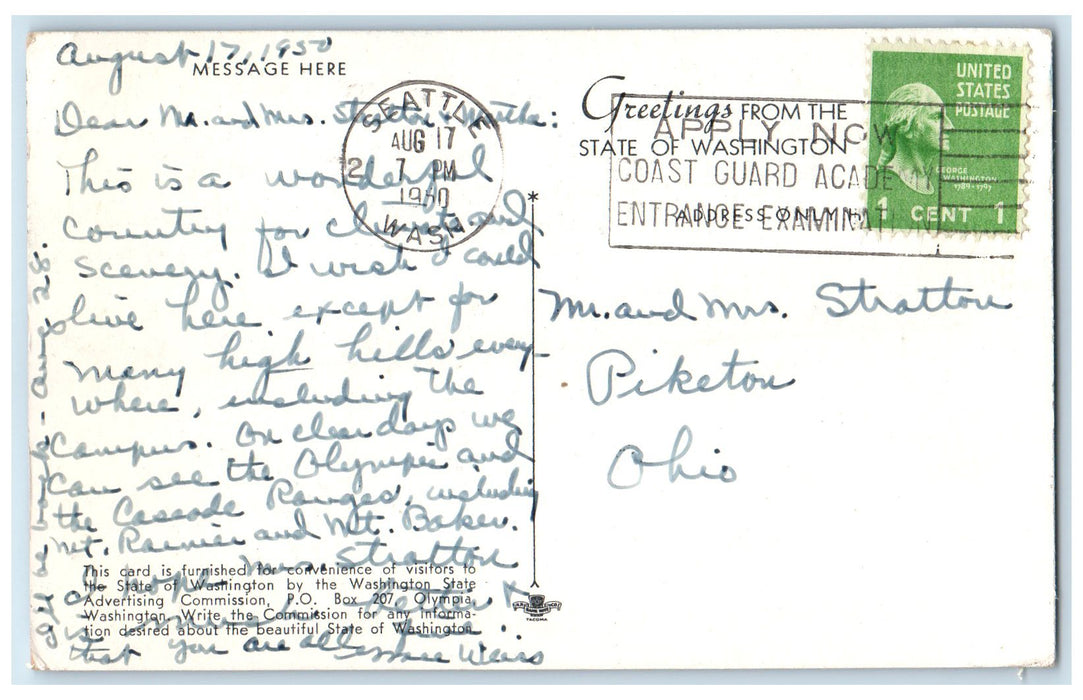 August 17, 1950
MESSAGE HERE
Dear Mr. and Mrs. Stratton &
This is a wonderful
country for climate and
scenery. I wish I could
live here, except for
many high hills every-
where, including the
campus. On clear days we
can see the Olympic and
the Cascade Ranges, including
Mt. Rainier and Mt. Baker.
I hope Mrs. Stratton
is much better &
that you are all
Weiss
This card is furnished for convenience of visitors to
the State of Washington by the Washington State
Advertising Commission, P.O. Box 207, Olympia,
Washington. Write the Commission for any informa-
tion desired about the beautiful State of Washington.
SEATTLE
AUG 17
7 PM
1950
WASH.
2
Greetings FROM THE
STATE OF WASHINGTON
ADDRESS ONLY
APPLY NOW
COAST GUARD ACADE
ENTRANCE EXAMINATI
UNITED
STATES
POSTAGE
GEORGE
WASHINGTON
1789-1797
1 CENT 1
Mr. and Mrs. Stratton
Piketon
Ohio
TACOMA